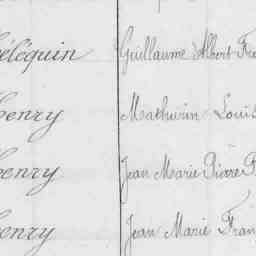 éléquin Guillaume Albert Fra
Henry Mathurin Louis
Henry Jean Marie Pierre
Henry Jean Marie Fran